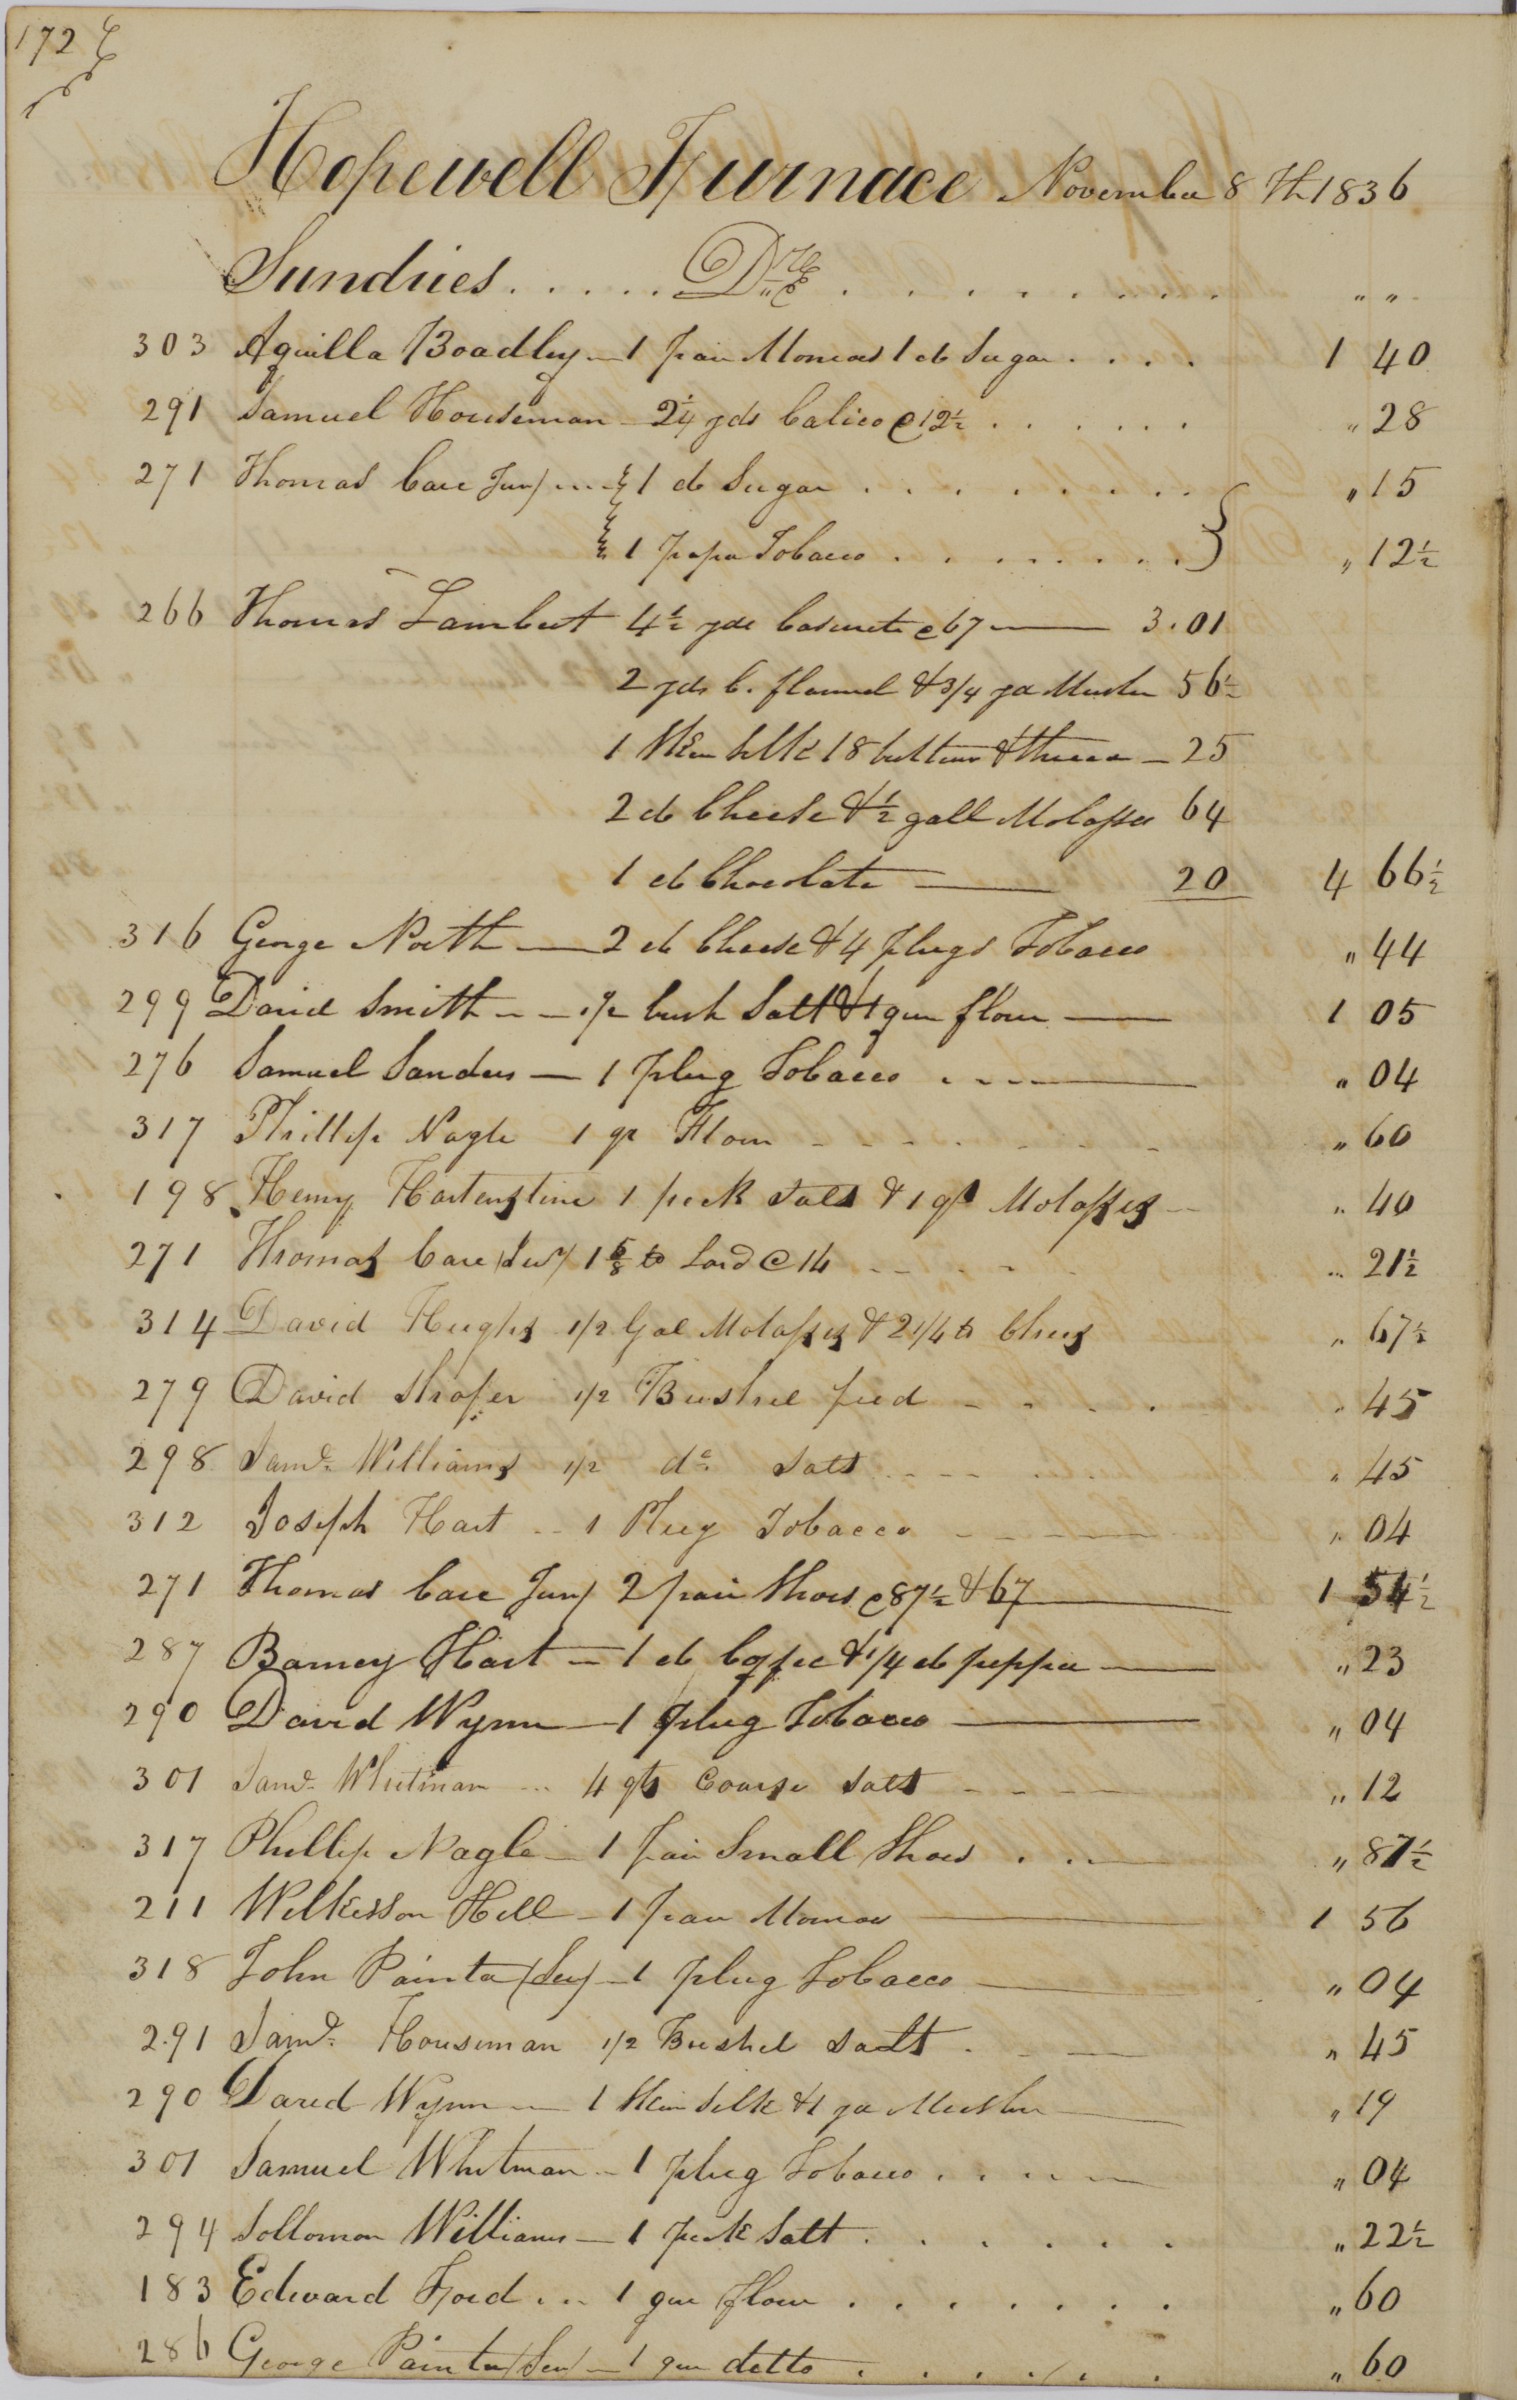 172
Hopewell Furnace November 8th 1836
Sundries. . . . . Drs . . . . . . . . . " "
303 Aquilla Boadley — 1 pair Monroes 1 lb Sugar . . . . 1 40
291 Samuel Houseman 2 1/4 yds Calico @ 12 1/2 . . . . . . " 28
271 Thomas Care Jun) 1 lb Sugar . . . . . . . . " 15
1 paper Tobacco . . . . . . . . " 12 1/2
266 Thomas Lambert 4 1/2 yds Casinete @ 67 — 3.01
2 yds C. flannel & 3/4 yd Muslin 56 1/2
1 Skein Silk 18 buttons & thread — 25
2 lb Cheese & 1/2 gall Molasses 64
1 lb Chocolate — 20 4 66 1/2
316 George North — 2 lb Cheese & 4 plugs Tobacco " 44
299 David Smith — 1/2 bush Salt & 1 qur flour — 1 05
276 Samuel Sanders — 1 plug Tobacco . . — " 04
317 Phillip Nagle 1 qr Flour - - - - - - " 60
198 Henry Hartenstine 1 peck Salt & 1 qt Molasses -- " 40
271 Thomas Care (Jur) 1 5/8 lb Lard @ 14 - - - - " 21 1/2
314 David Hughs 1/2 Gal Molasses & 2 1/4 lb Chees " 67 1/2
279 David Shafer 1/2 Bushel feed - - . . " 45
298 Saml. Williams 1/2 do. Salt - - - - . . " 45
312 Joseph Hart -- 1 Plug Tobacco - - - - — " 04
271 Thomas Care Jun) 2 pair Shoes @ 87 1/2 & 67 — 1 54 1/2
287 Barney Hart — 1 lb Coffee & 1/4 lb pepper — " 23
290 David Wynn — 1 plug Tobacco — " 04
301 Saml. Whitman ... 4 qts Coarse Salt - - - — " 12
317 Phillip Nagle — 1 pair Small Shoes . . — " 87 1/2
211 Wilkesson Hill — 1 pair Monroes — 1 56
318 John Painter (Sen) — 1 plug Tobacco — " 04
291 Saml. Houseman 1/2 Bushel Salt . - — " 45
290 David Wynn — 1 Skein Silk & 1 yd Muslin — " 19
301 Samuel Whitman — 1 plug Tobacco . . . — " 04
294 Sollomon Williams — 1 peck Salt . . . . . . " 22 1/2
183 Edward Ford . .. 1 qur flour . . . . . . . " 60
286 George Painter (Sen) — 1 qur ditto . . . . . . " 60